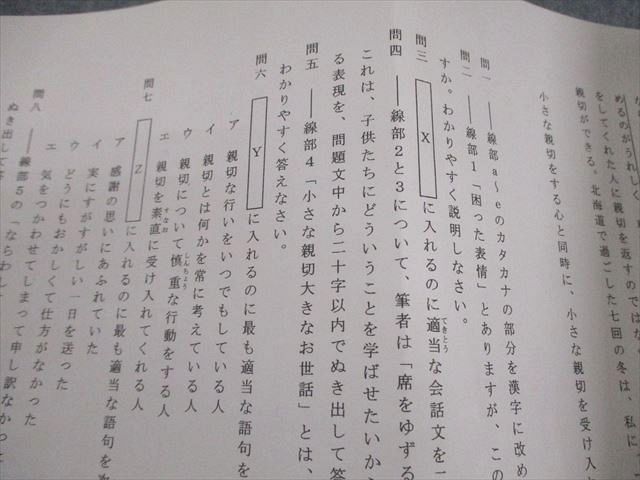 めるのがうれしく
をしてくれた人に親切を返すのではな
親切ができる。北海道で過ごした七回の冬は、私に
小さな親切をする心と同時に、小さな親切を受け入
問一 ――線部a～eのカタカナの部分を漢字に改め
問二 ――線部1「困った表情」とありますが、この
すか。わかりやすく説明しなさい。
問三 X に入れるのに適当な会話文を二
てきとう
問四 ――線部2と3について、筆者は「席をゆずる
これは、子供たちにどういうことを学ばせたいから
る表現を、問題文中から二十字以内でぬき出して答
問五 ――線部4「小さな親切大きなお世話」とは、
わかりやすく答えなさい。
問六 Y に入れるのに最も適当な語句を
ア 親切な行いをいつでもしている人
イ 親切とは何かを常に考えている人
ウ 親切について慎重な行動をする人
しんちょう
エ 親切を素直に受け入れてくれる人
すなお
問七 Z に入れるのに最も適当な語句を
ア 感謝の思いにあふれていた
イ 実にすがすがしい一日を送った
ウ どうにもおかしくて仕方がなかった
エ 気をつかわせてしまって申し訳なかった
問八 ――線部5の「ならわし
ぬき出して答